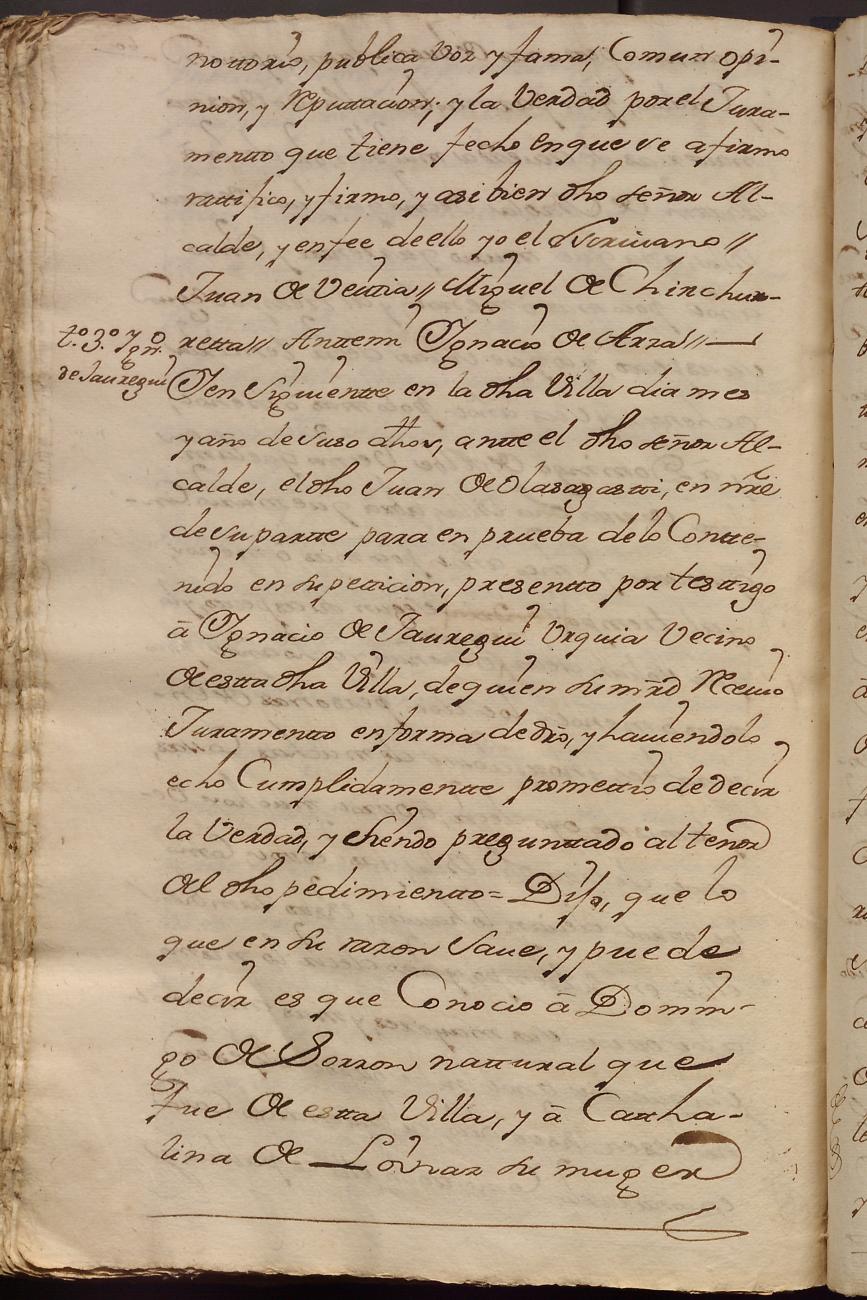 nottorio, publica Voz y fama, Comun opi-
nion, y Reputacion, y la Verdad por el Jura-
mento que tiene fecho en que se afirmo
rattifico, y firmo, y asi bien dho señor Al-
calde, y en fee de ello yo el escrivano //
Juan de Veitia // Miguel de Chinchur-
retta // Antemi Ygnacio de Arza //
t.º 3.º Ygn.º
de Jauregui
Y en Siguiente en la dha Villa dia mes
y año de suso dhos, ante el dho señor Al-
calde, el dho Juan de Olasagasti, en nre
de su partte para en prueba de lo Contte-
nido en su petticion, presentto por testtigo
â Ygnacio de Jauregui Urquia Vecino
de estta dha Villa, de quien su mrd Recivio
Juramento en forma de dro, y haviendolo
echo Cumplidamente promettio de decir
la Verdad, y siendo preguntado al tenor
del dho pedimiento = Dijo, que lo
que en su razon Save, y puede
decir es que Conocio â Domin-
go de Sorron nattural que
fue de estta Villa, y â Catha-
lina de su muger